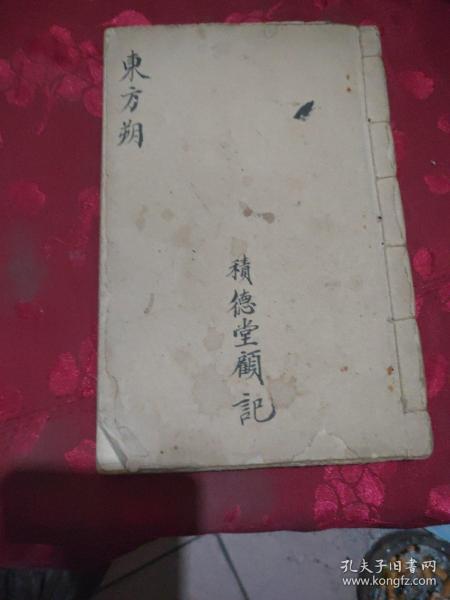 東方朔
積德堂顧記
孔夫子旧书网
www.kongfz.com